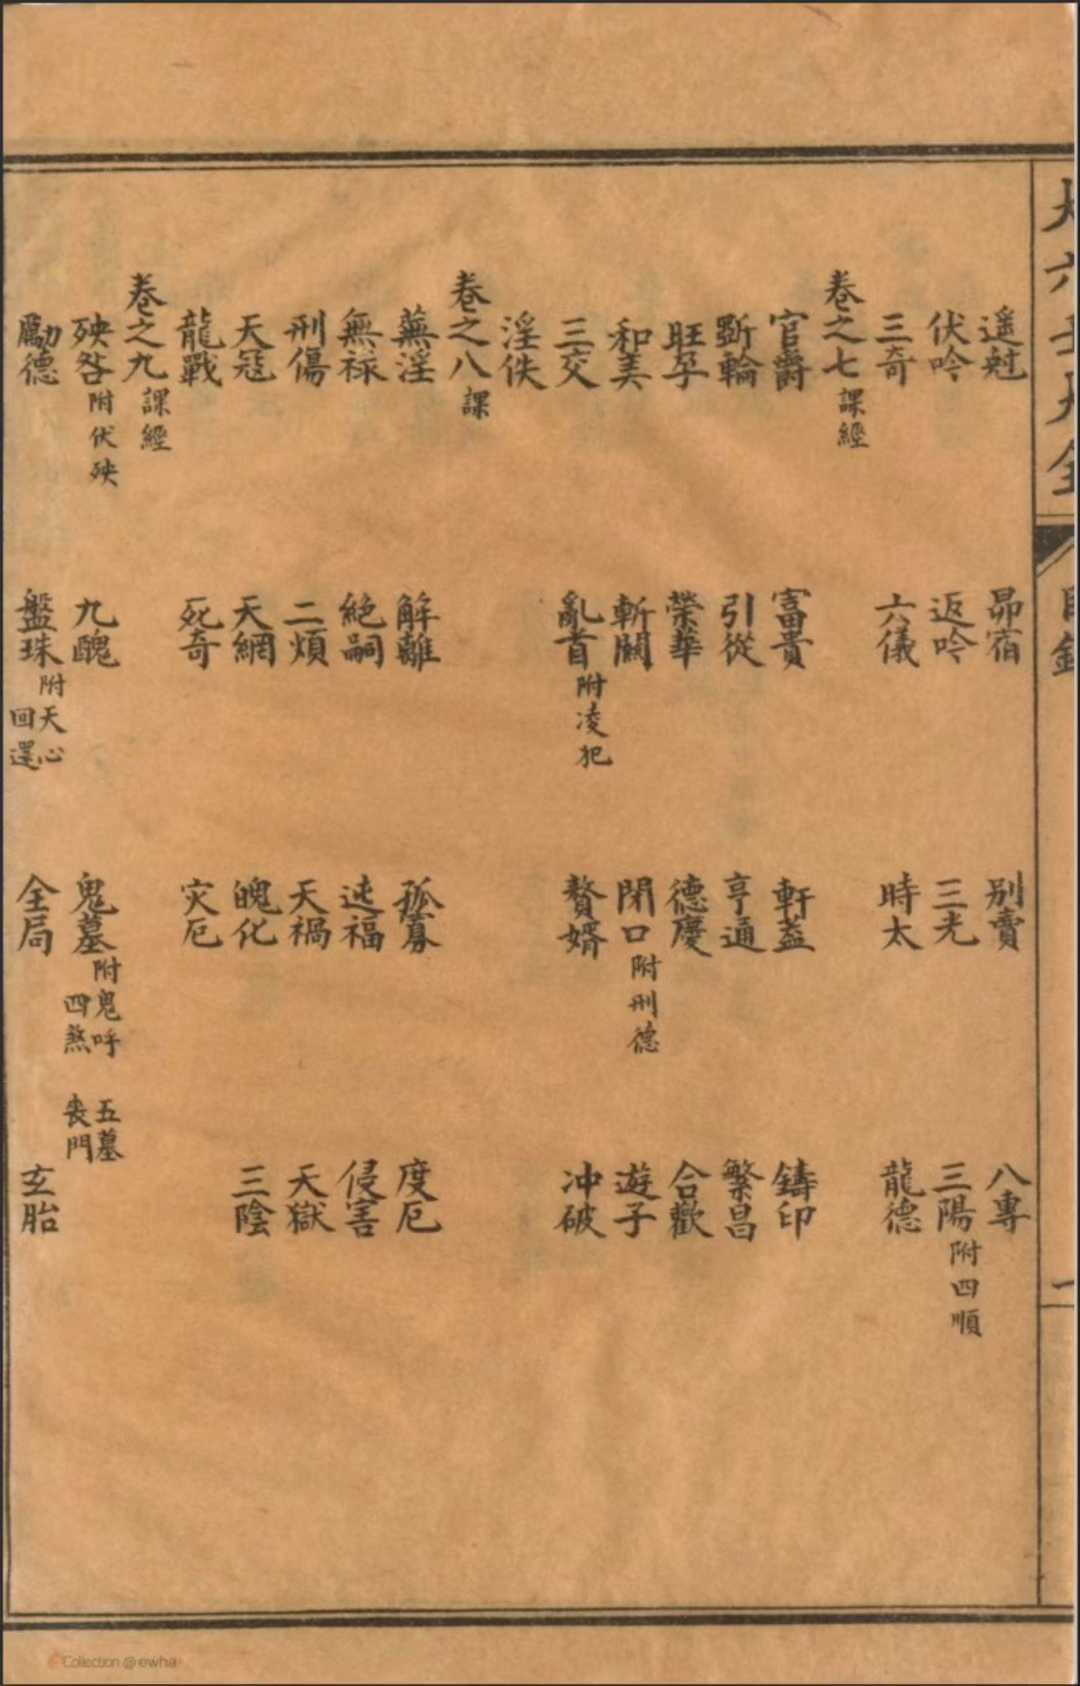 大六壬大全 目錄 一
遥尅 昴宿 别責 八專
伏吟 返吟 三光 三陽附四順
三奇 六儀 時太 龍德
卷之七 課經
官爵 富貴 軒蓋 鑄印
斲輪 引從 亨通 繁昌
旺孕 榮華 德慶 合歡
和美 斬關 閉口附刑德 遊子
三交 亂首附凌犯 贅婿 冲破
淫佚
卷之八 課
蕪淫 解離 孤寡 度厄
無禄 絕嗣 迍福 侵害
刑傷 二煩 天禍 天獄
天寇 天網 魄化 三陰
龍戰 死奇 灾厄
卷之九 課經
殃咎附伏殃 九醜 鬼墓附鬼呼 四煞 五墓 喪門
勵德 盤珠附天心 回還 全局 玄胎
Collection @ ewha